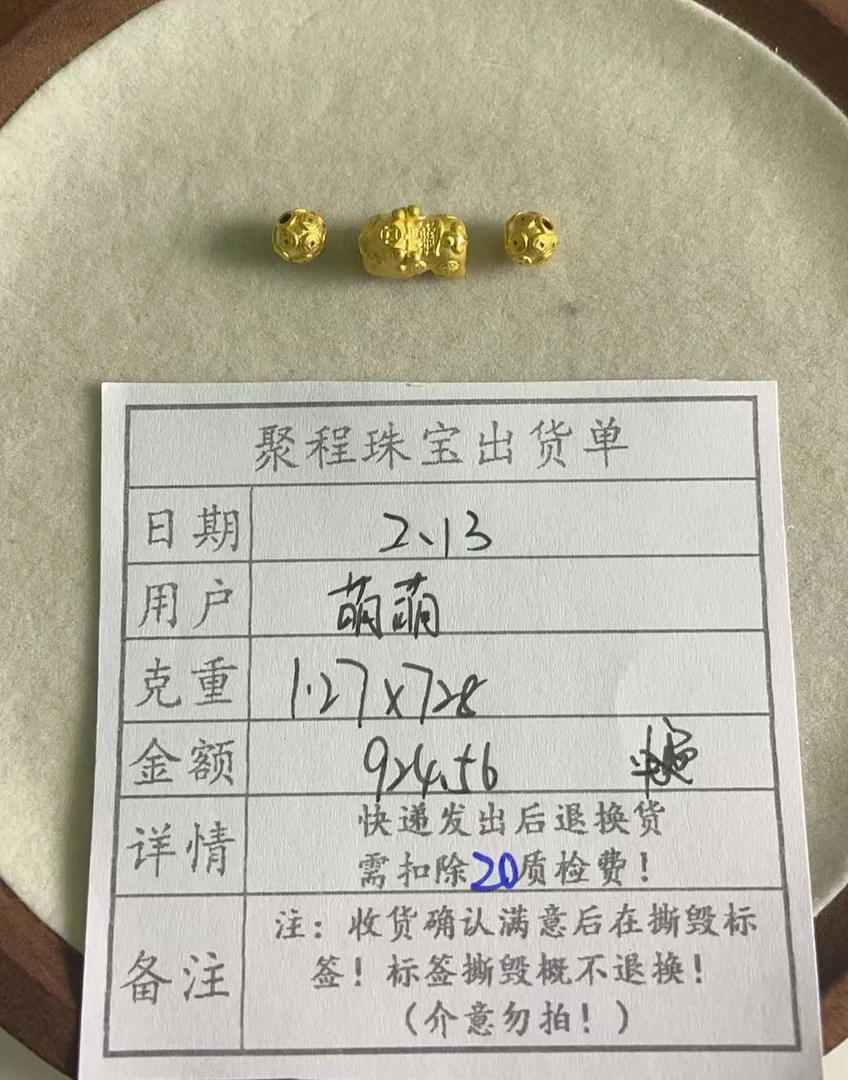 聚程珠宝出货单
日期 2、13
用户 萌萌
克重 1.27×728
金额 924.56
详情 快递发出后退换货
需扣除20质检费！
备注 注：收货确认满意后在撕毁标
签！标签撕毁概不退换！
（介意勿拍！）